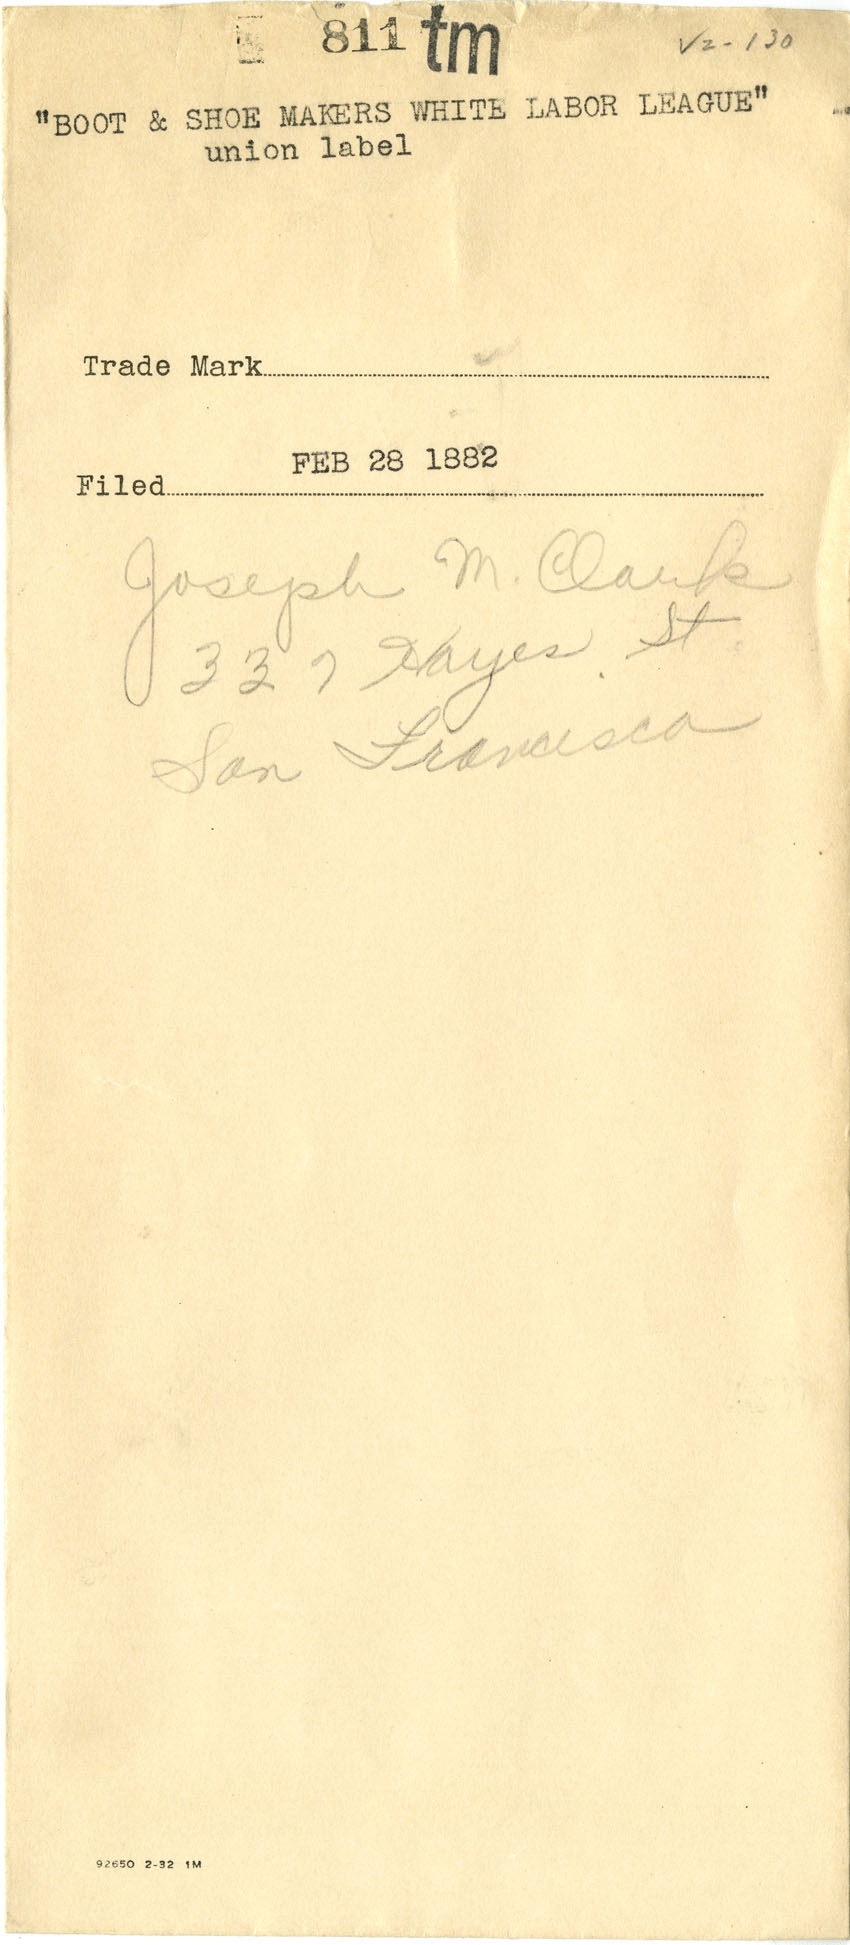 811 tm
V2-130
"BOOT & SHOE MAKERS WHITE LABOR LEAGUE"
union label
Trade Mark
FEB 28 1882
Filed
Joseph M. Clark
337 Hayes St
San Francisco
92650 2-32 1M